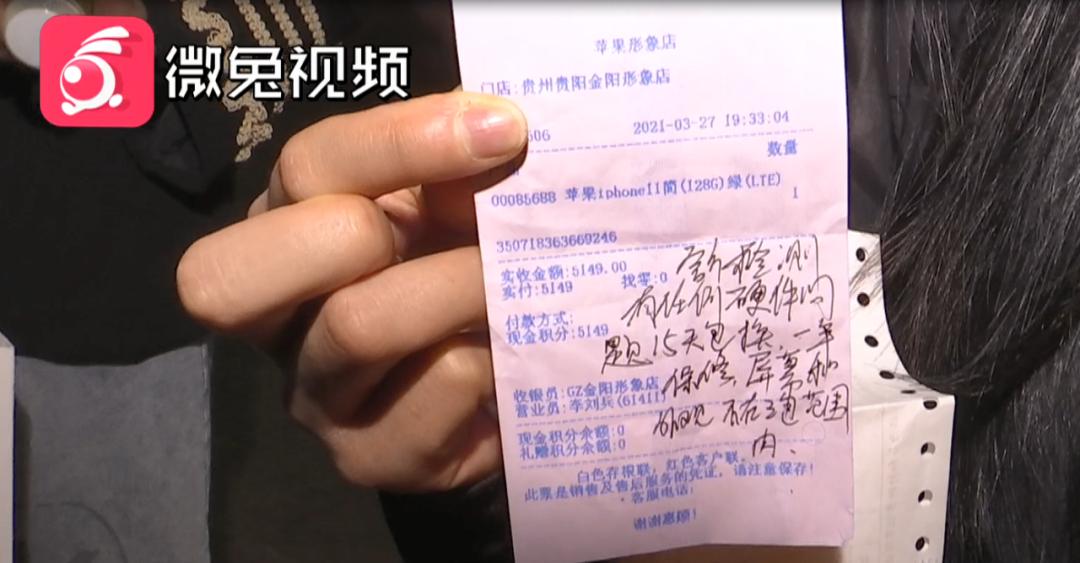 微兔视频
苹果形象店
门店:贵州贵阳金阳形象店
606 2021-03-27 19:33:04
数量
00085688 苹果iphone11简(128G)绿(LTE) 1
350718363669246
实收金额:5149.00 找零:0
实付:5149
付款方式:
现金积分:5149
收银员:GZ金阳形象店
营业员:李刘兵(61411)
现金积分余额:0
礼赠积分余额:0
检测
有任何硬件问
题15天包换、一年
保修、屏幕和
外观不在三包范围
内、
白色存根联,红色客户联。
此票是销售及售后服务的凭证,请注意保存!
客服电话:
谢谢惠顾!